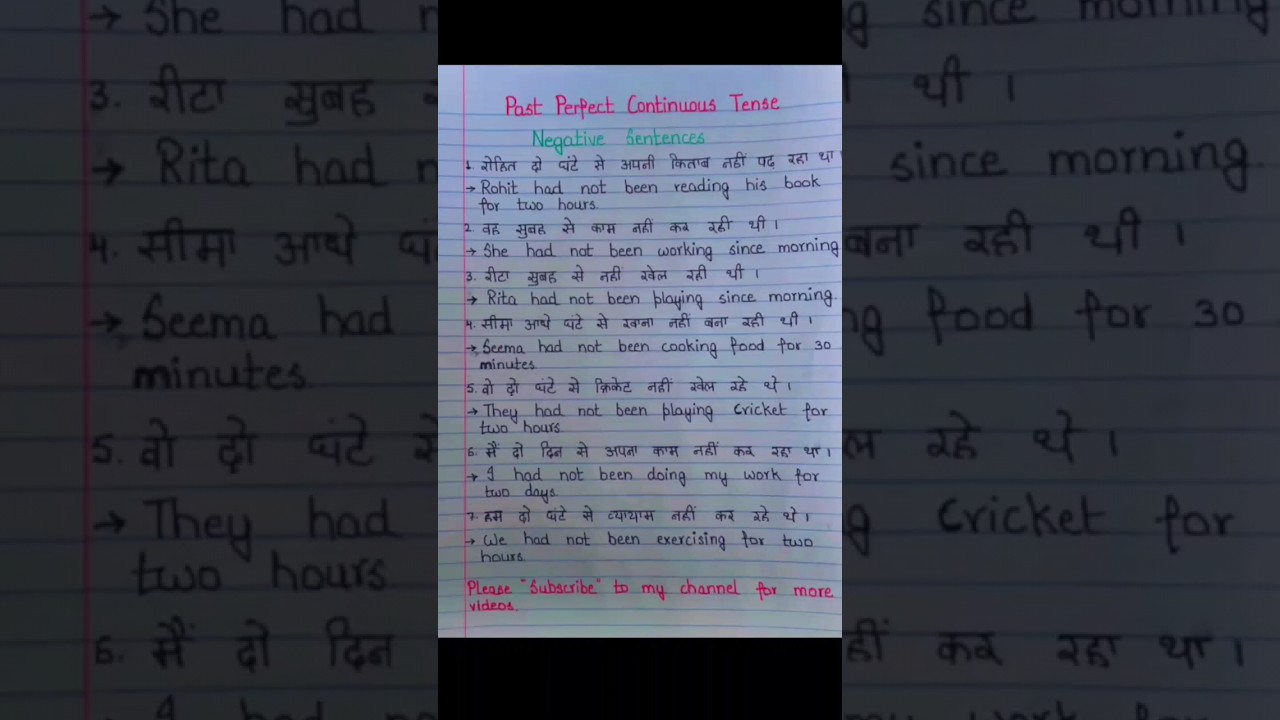 Past Perfect Continuous Tense
Negative Sentences
1. रोहित दो घंटे से अपनी किताब नहीं पढ़ रहा था।
→ Rohit had not been reading his book
for two hours.
2. वह सुबह से काम नहीं कर रही थी।
→ She had not been working since morning
3. रीटा सुबह से नहीं खेल रही थी।
→ Rita had not been playing since morning.
4. सीमा आधे घंटे से खाना नहीं बना रही थी।
→ Seema had not been cooking food for 30
minutes.
5. वो दो घंटे से क्रिकेट नहीं खेल रहे थे।
→ They had not been playing Cricket for
two hours.
6. मैं दो दिन से अपना काम नहीं कर रहा था।
→ I had not been doing my work for
two days.
7. हम दो घंटे से व्यायाम नहीं कर रहे थे।
→ We had not been exercising for two
hours.
Please "Subscribe" to my channel for more
videos.